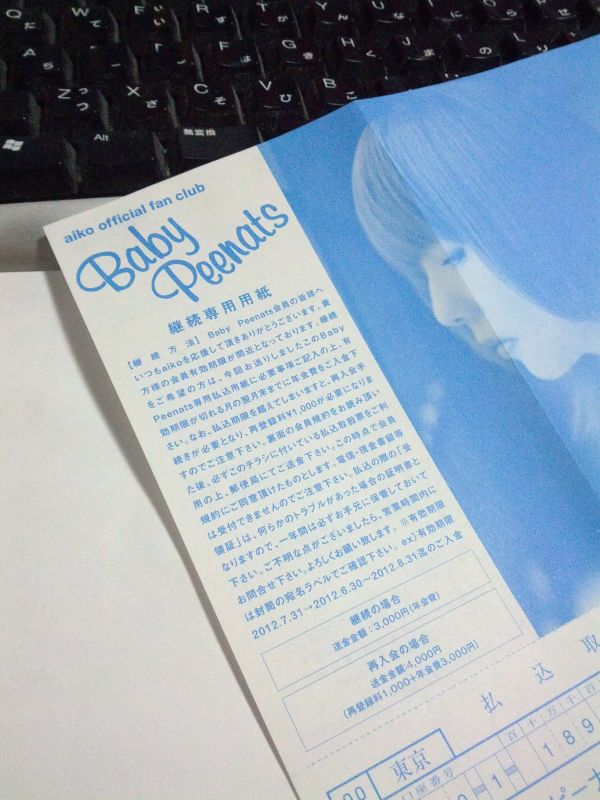 Q た
W て
E い
R す
T か
Y ん
A ち
S と
D し
F は
G き
H く
J ま
の
Z つ
X さ
C そ
V ひ
B こ
Alt
無変換
aiko official fan club
Baby
Peenats
継続専用用紙
【継 続 方 法】Baby Peenats会員の皆様へ
いつもaikoを応援して頂きありがとうございます。貴
方様の会員有効期限が間近となっております。継続
をご希望の方は、今回お送りしましたこのBaby
Peenats専用払込用紙に必要事項ご記入の上、有
効期限が切れる月の翌月末までに年会費をご入金下
さい。なお、払込期限を超えてしまいますと、再入会手
続きが必要となり、再登録料¥1,000が必要になりま
すのでご注意下さい。裏面の会員規約をお読み頂い
た後、必ずこのチラシに付いている払込取扱票をご利
用の上、郵便局にてご送金下さい。この時点で会員
規約にご同意頂けたものとします。電信・現金書留等
は受付できませんのでご注意下さい。払込の際の「受
領証」は、何らかのトラブルがあった場合の証明書と
なりますので、一年間は必ずお手元に保管しておいて
下さい。ご不明な点がございましたら、営業時間内に
お問合せ下さい。よろしくお願い致します。※有効期限
は封筒の宛名ラベルでご確認下さい。ex)有効期限
2012.7.31→2012.6.30〜2012.8.31迄のご入金
継続の場合
送金金額:3,000円(年会費)
再入会の場合
送金金額:4,000円
(再登録料1,000+年会費3,000円)
払 込 取
00 東京
口座番号
百 十 万 千 百
0 1 = 1 8 9
ピーナ